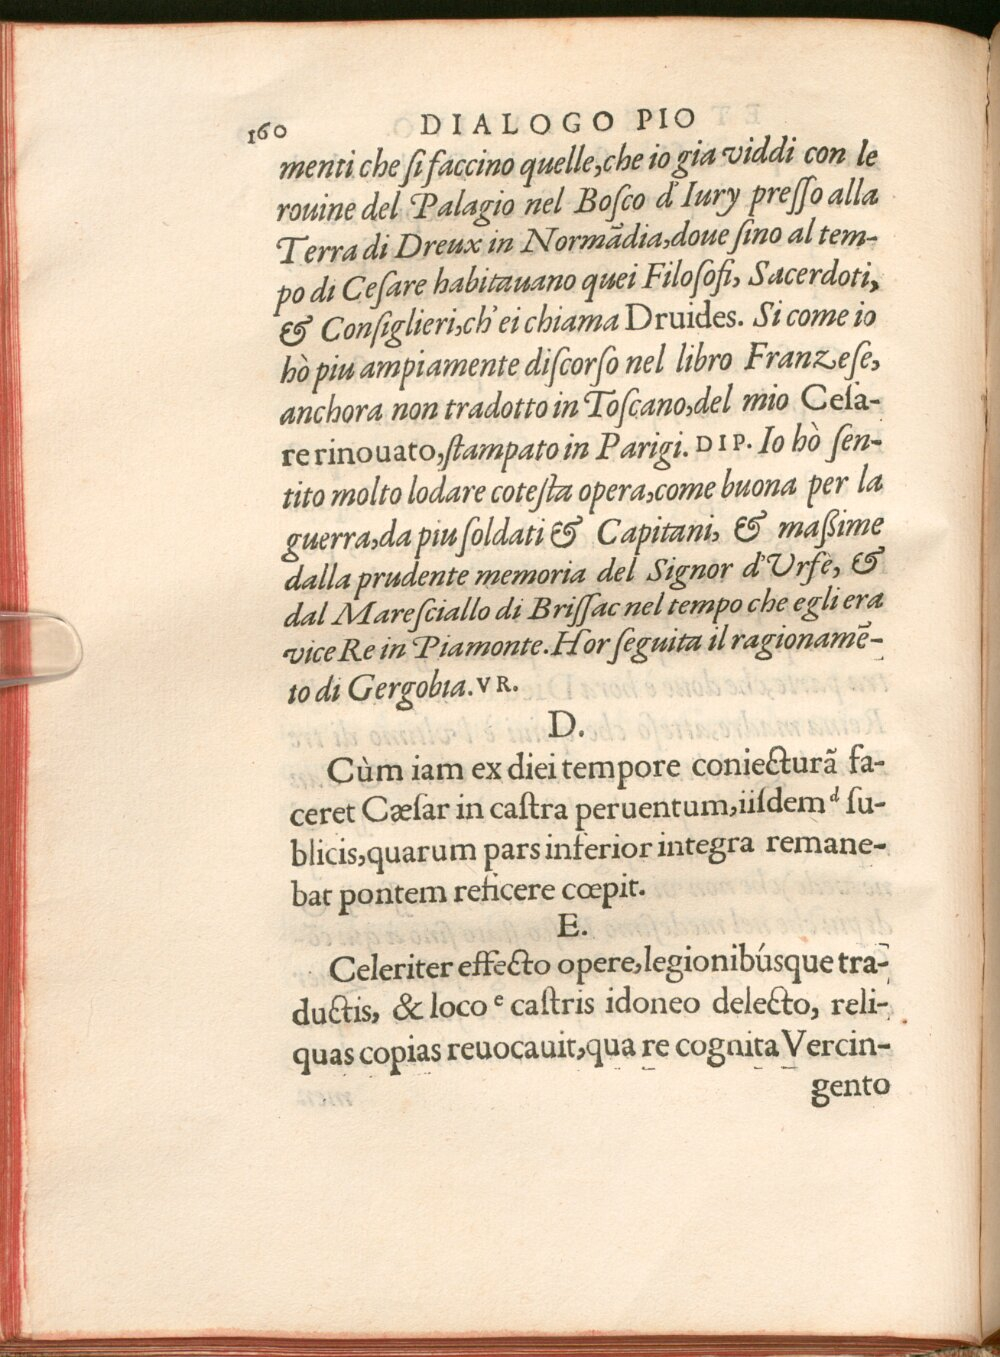 160 DIALOGO PIO
menti che ſi faccino quelle, che io gia viddi con le
rouine del Palagio nel Boſco d'Iury preſſo alla
Terra di Dreux in Normãdia, doue ſino al tem-
po di Ceſare habitauano quei Filoſofi, Sacerdoti,
& Conſiglieri, ch'ei chiama Druides. Si come io
hò piu ampiamente diſcorſo nel libro Franzeſe,
anchora non tradotto in Toſcano, del mio Ceſa-
re rinouato, ſtampato in Parigi. DIP. Io hò ſen-
tito molto lodare coteſta opera, come buona per la
guerra, da piu ſoldati & Capitani, & maßime
dalla prudente memoria del Signor d'Vrfè, &
dal Mareſciallo di Briſſac nel tempo che egli era
vice Re in Piamonte. Hor ſeguita il ragionamẽ-
to di Gergobia. VR.
D.
Cùm iam ex diei tempore coniecturã fa-
ceret Cæſar in caſtra peruentum, iiſdem d ſu-
blicis, quarum pars inferior integra remane-
bat pontem reficere cœpit.
E.
Celeriter effecto opere, legionibúsque tra-
ductis, & loco e caſtris idoneo delecto, reli-
quas copias reuocauit, qua re cognita Vercin-
gento